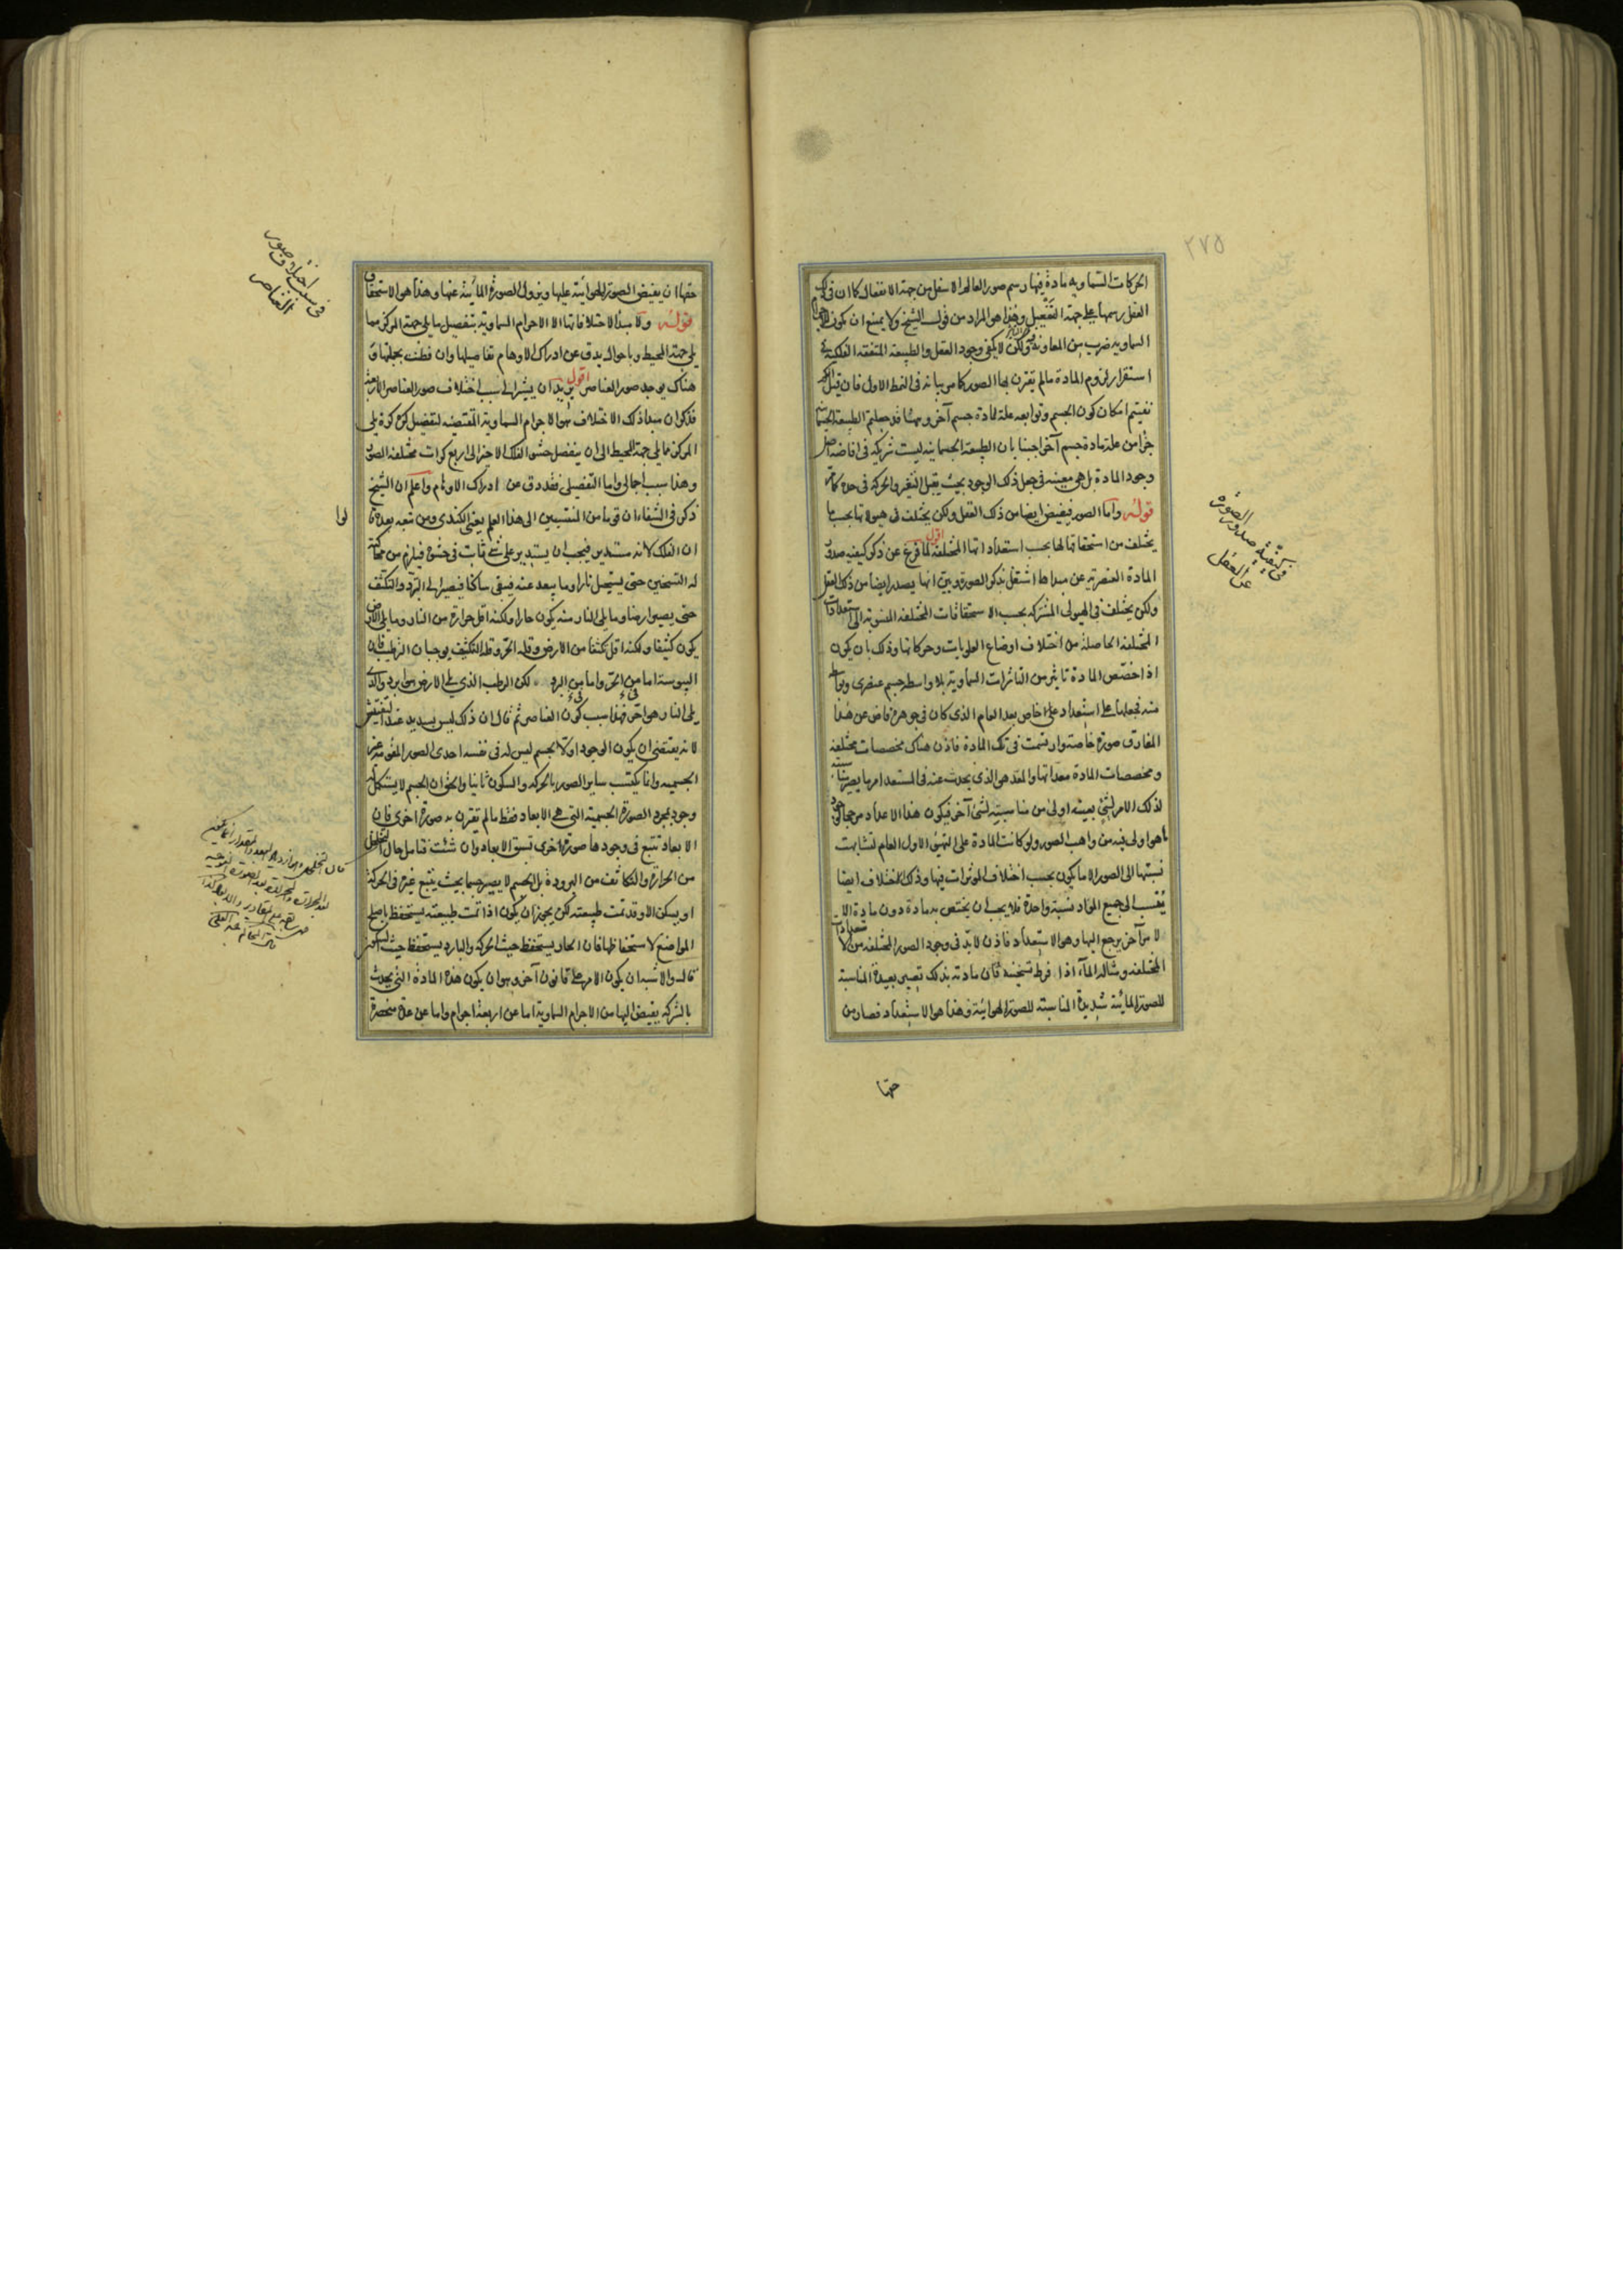 ٢٧٥
الحركات السماوية مادة فيها رسم صور العالم الاسفل من جهة الانفعال كما ان فى ذلك
العقل رسمها على جهة التفعيل وهذا هو المراد من قول الشيخ ولا يمتنع ان يكون للاجرام
السماوية ضرب من المعاونة فيه ولكن لا يكفى وجود العقل والطبيعة المتفقة الفلكية فى
استقرار لزوم المادة ما لم يقترن بها الصور كما مر بيانه فى النمط الاول فان قيل
نفيتم امكان كون الجسم وتوابعه علة لمادة جسم آخر وههنا قد جعلتم الطبيعة الجسمانية
جزأ من علة مادة جسم آخر اجبنا بان الطبيعة الجسمانية ليست شريكة فى افاضة اصل
وجود المادة بل هى معينة فى جعل ذلك الوجود بحيث يقبل التغير والحركة فى حد
قوله واما الصور فيفيض ايضا من ذلك العقل ولكن يختلف فى هيولاتها بحسب ما
يختلف من استحقاقاتها لها بحسب استعداداتها المختلفة اقول لما فرغ عن ذكر كيفية صدور
المادة العنصرية عن مبدأها اشتغل بذكر الصورة وبين انها يصدر ايضا من ذلك العقل
ولكن يختلف فى الهيولى المشتركة بحسب الاستحقاقات المختلفة المنسوبة الى استعدادات
المختلفة الحاصلة من اختلاف اوضاع العلويات وحركاتها وذلك بان يكون
اذا خصص المادة تاثير من التاثيرات السماوية بلا واسطة جسم عنصرى او بواسطة
منه فجعلها على استعداد خاص بعد العام الذى كان فى جوهره فاض عن هذا
المفارق صورة خاصة وارتسمت فى تلك المادة فاذن هناك مخصصات مختلفة
ومخصصات المادة معداتها والمعد هو الذى يحدث عنه فى المستعد امر ما يصير مناسبته
لذلك الامر لشئ بعينه اولى من مناسبته لشئ آخر فيكون هذا الاعداد مرجحا لوجود
ما هو اولى فيه من واهب الصور ولو كانت المادة على التهيئ الاول العام لتشابهت
نسبتها الى الصور الا ما يكون بحسب اختلاف المؤثرات فيها وذلك الاختلاف ايضا
ينسب الى جميع المواد نسبة واحدة فلا يجب ان يختص به مادة دون مادة الا
لامر آخر يرجع اليها وهو الاستعداد فاذن لا بد فى وجود الصور المختلفة من الاستعدادات
المختلفة ومثاله الماء اذا افرط تسخينه فان مادته بذلك تصير بعيدة المناسبة
للصورة المائية شديدة المناسبة للصورة الهوائية وهذا هو الاستعداد فصار من
حقها
فى كيفية صدور الصورة
عن العقل
حقها ان يفيض الصورة الهوائية عليها ويزول الصورة المائية عنها وهذا هو الاستحقاق
قوله ولا مبدأ لاختلافاتها الا الاجرام السماوية بتفصيل ما يلى جهة المركز مما
يلى جهة المحيط وباحوال يدق عن ادراك الاوهام تفاصيلها وان فطنت بجملتها و
هناك يوجد صور العناصر اقول يريد ان يشير الى سبب اختلاف صور العناصر الاربعة
فذكر ان مبدأ ذلك الاختلاف هو الاجرام السماوية المقتضية لتفصيل كل كرة يلى
المركز مما يلى جهة المحيط الى ان ينفصل حشو الفلك الاخير الى اربع كرات مختلفة الصور
وهذا سبب اجمالى واما التفصيلى فقد دق عن ادراك الاوهام واعلم ان الشيخ
ذكر فى الشفاء ان قوما من المنتسبين الى هذا العلم يعنى الكندى ومن تبعه بعده قالوا
ان الفلك لانه مستدير فيجب ان يستدير على شئ ثابت فى حشوه فيلزم من محاكته
له التسخين حتى يستحيل نارا وما يبعد عنه فيبقى ساكنا فيصير الى التبرد والتكثف
حتى يصير ارضا وما يلى النار منه يكون حارا ولكنه اقل حرارة من النار وما يلى الارض
يكون كثيفا ولكنه اقل تكثفا من الارض وقلة الحر وقلة التكثيف يوجبان الترطيب فان
اليبوسة اما من الحر واما من البرد لكن الرطب الذى يلى الارض هو ابرد والذى
يلى النار هو احر فهذا سبب كون العناصر ثم قال ان ذلك ليس بسديد عند التفتيش
لانه يقتضى ان يكون الوجود اولا لجسم ليس له فى نفسه احدى الصور المقومة غير
الجسمية وانما يكتسب ساير الصور بالحركة والسكون ثانيا والحق ان الجسم لا يستكمل له
وجود بمجرد الصورة الجسمية التى هى الابعاد فقط ما لم يقترن به صورة اخرى فان
الابعاد تتبع فى وجودها صورة اخرى تسبق الابعاد وان شئت فتامل حال التخلخل
من الحرارة والتكاثف من البرودة بل الجسم لا يصير جسما بحيث يتبع غيره فى الحركة
او يسكن الا وقد تمت طبيعته لكن يجوز ان يكون اذا تمت طبيعته يستحفظ باصلح
المواضع لاستحفاظها فان الحار يستحفظ حيث الحركة والبارد يستحفظ حيث السكون
قال والاشبه ان يكون الامر على قانون آخر وهو ان يكون هذه المادة التى يحدث
بالشركة يفيض اليها من الاجرام السماوية اما عن اربعة اجرام واما عن عدة منحصرة
فى سبب اختلاف صور
العناصر
لوا